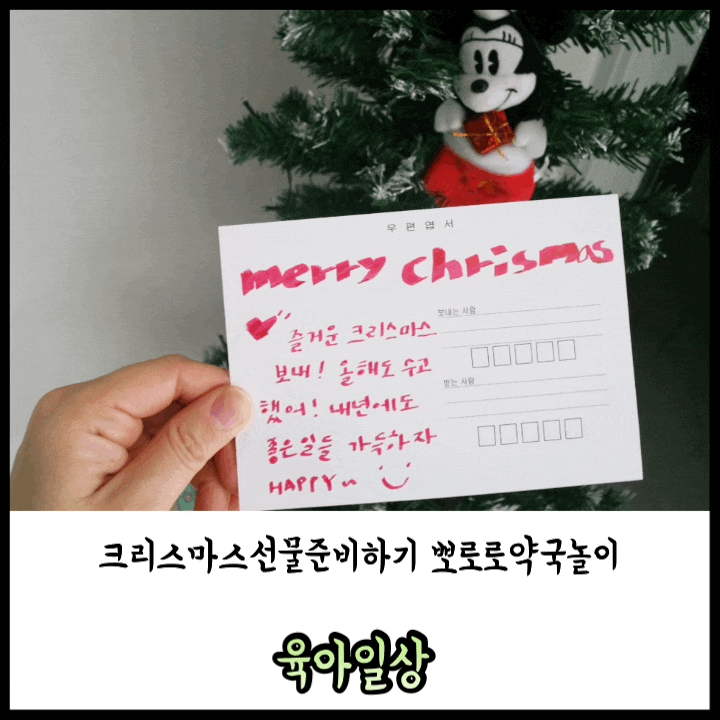 우편엽서
merry chrismas
즐거운 크리스마스
보내! 올해도 수고
했어! 내년에도
좋은일들 가득하자
HAPPY~
보내는 사람
받는 사람
크리스마스선물준비하기 뽀로로약국놀이
육아일상